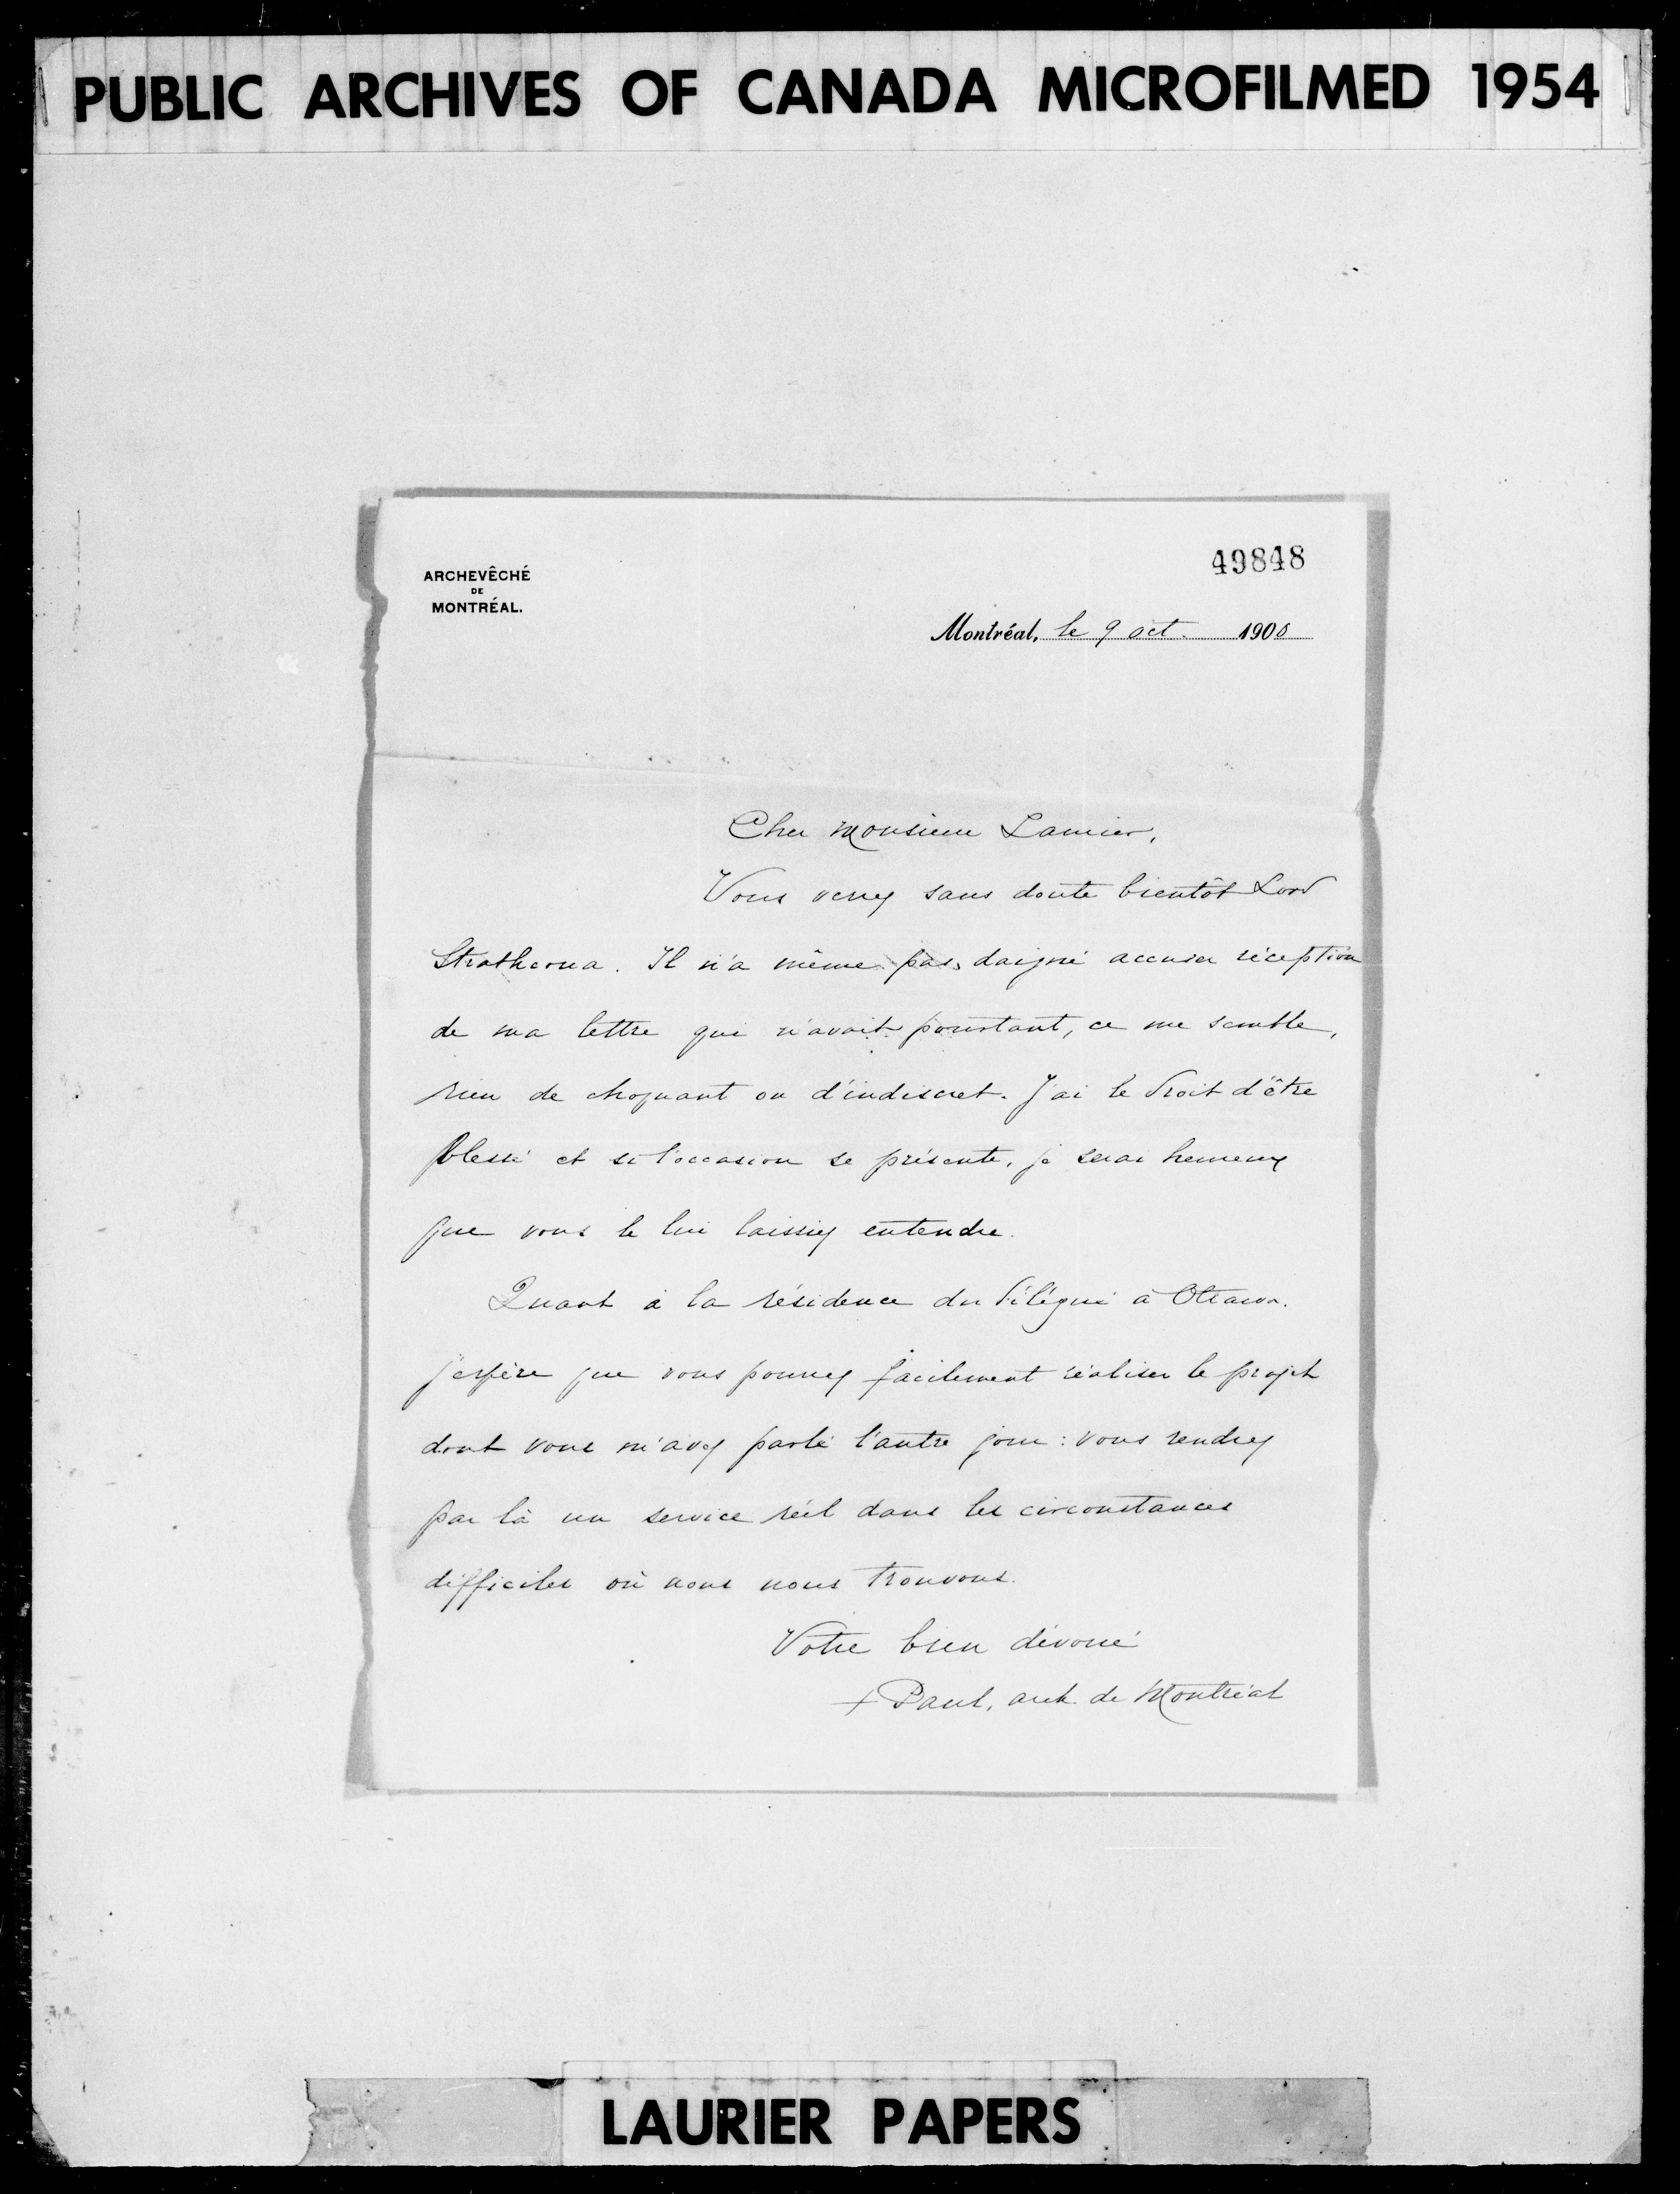 PUBLIC ARCHIVES OF CANADA MICROFILMED 1954
49848
ARCHEVÊCHÉ
DE
MONTRÉAL.
Montréal, le 9 oct. 1900
Cher Monsieur Laurier,
Vous verrez sans doute bientôt Lord
Strathcona. Il n'a même pas daigné accuser réception
de ma lettre qui n'avait pourtant, ce me semble,
rien de choquant ou d'indiscret. J'ai le droit d'être
blessé et si l'occasion se présente, je serai heureux
que vous le lui laissiez entendre.
Quant à la résidence du Délégué à Ottawa.
j'espère que vous pourrez facilement réaliser le projet
dont vous m'avez parlé l'autre jour : vous rendrez
par là un service réel dans les circonstances
difficiles où nous nous trouvons.
Votre bien dévoué
+ Paul, arch. de Montréal
LAURIER PAPERS